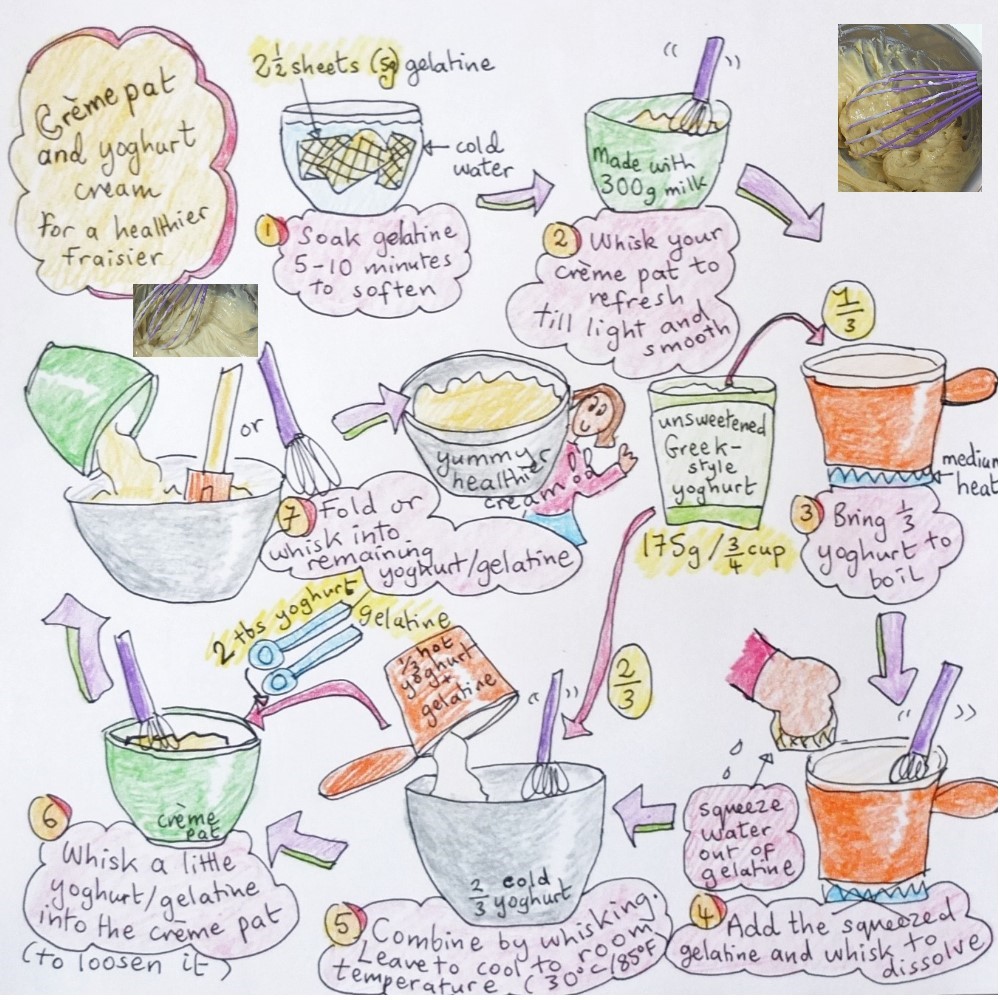 Crème pat
and yoghurt
cream
for a healthier
fraisier
2½ sheets (5g) gelatine
cold
water
1 Soak gelatine
5-10 minutes
to soften
Made with
300g milk
2 Whisk your
crème pat to
refresh
till light and
smooth
1/3
unsweetened
Greek-
style
yoghurt
175g / 3/4 cup
medium
heat
3 Bring 1/3
yoghurt to
boil
squeeze
water
out of
gelatine
4 Add the squeezed
gelatine and whisk to
dissolve
2/3
1/3 hot
yoghurt
+
gelatine
2/3 cold
yoghurt
5 Combine by whisking.
Leave to cool to room
temperature (30°C/85°F
2 tbs yoghurt/
gelatine
crème
pat
6 Whisk a little
yoghurt/gelatine
into the crème pat
(to loosen it)
or
7 Fold or
whisk into
remaining
yoghurt/gelatine
yummy
healthier
cream